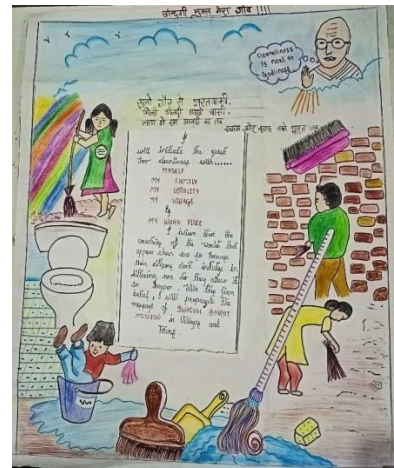 गन्दगी मुक्त मेरा गाँव !!!!
Cleanliness
is next to
Godliness
सुनो गौर से भारतवासी,
I
will initiate the quest
for cleanliness with......
MYSELF
MY FAMILY
MY LOCALITY
MY VILLAGE
&
MY WORK PLACE
I believe that the
countries of the world that
appear clean are so because
their citizens don't indulge in
littering nor do they allow it
to happen. With this firm
belief, I will propagate the
message of SWACHH BHARAT
MISSION in villages and
towns